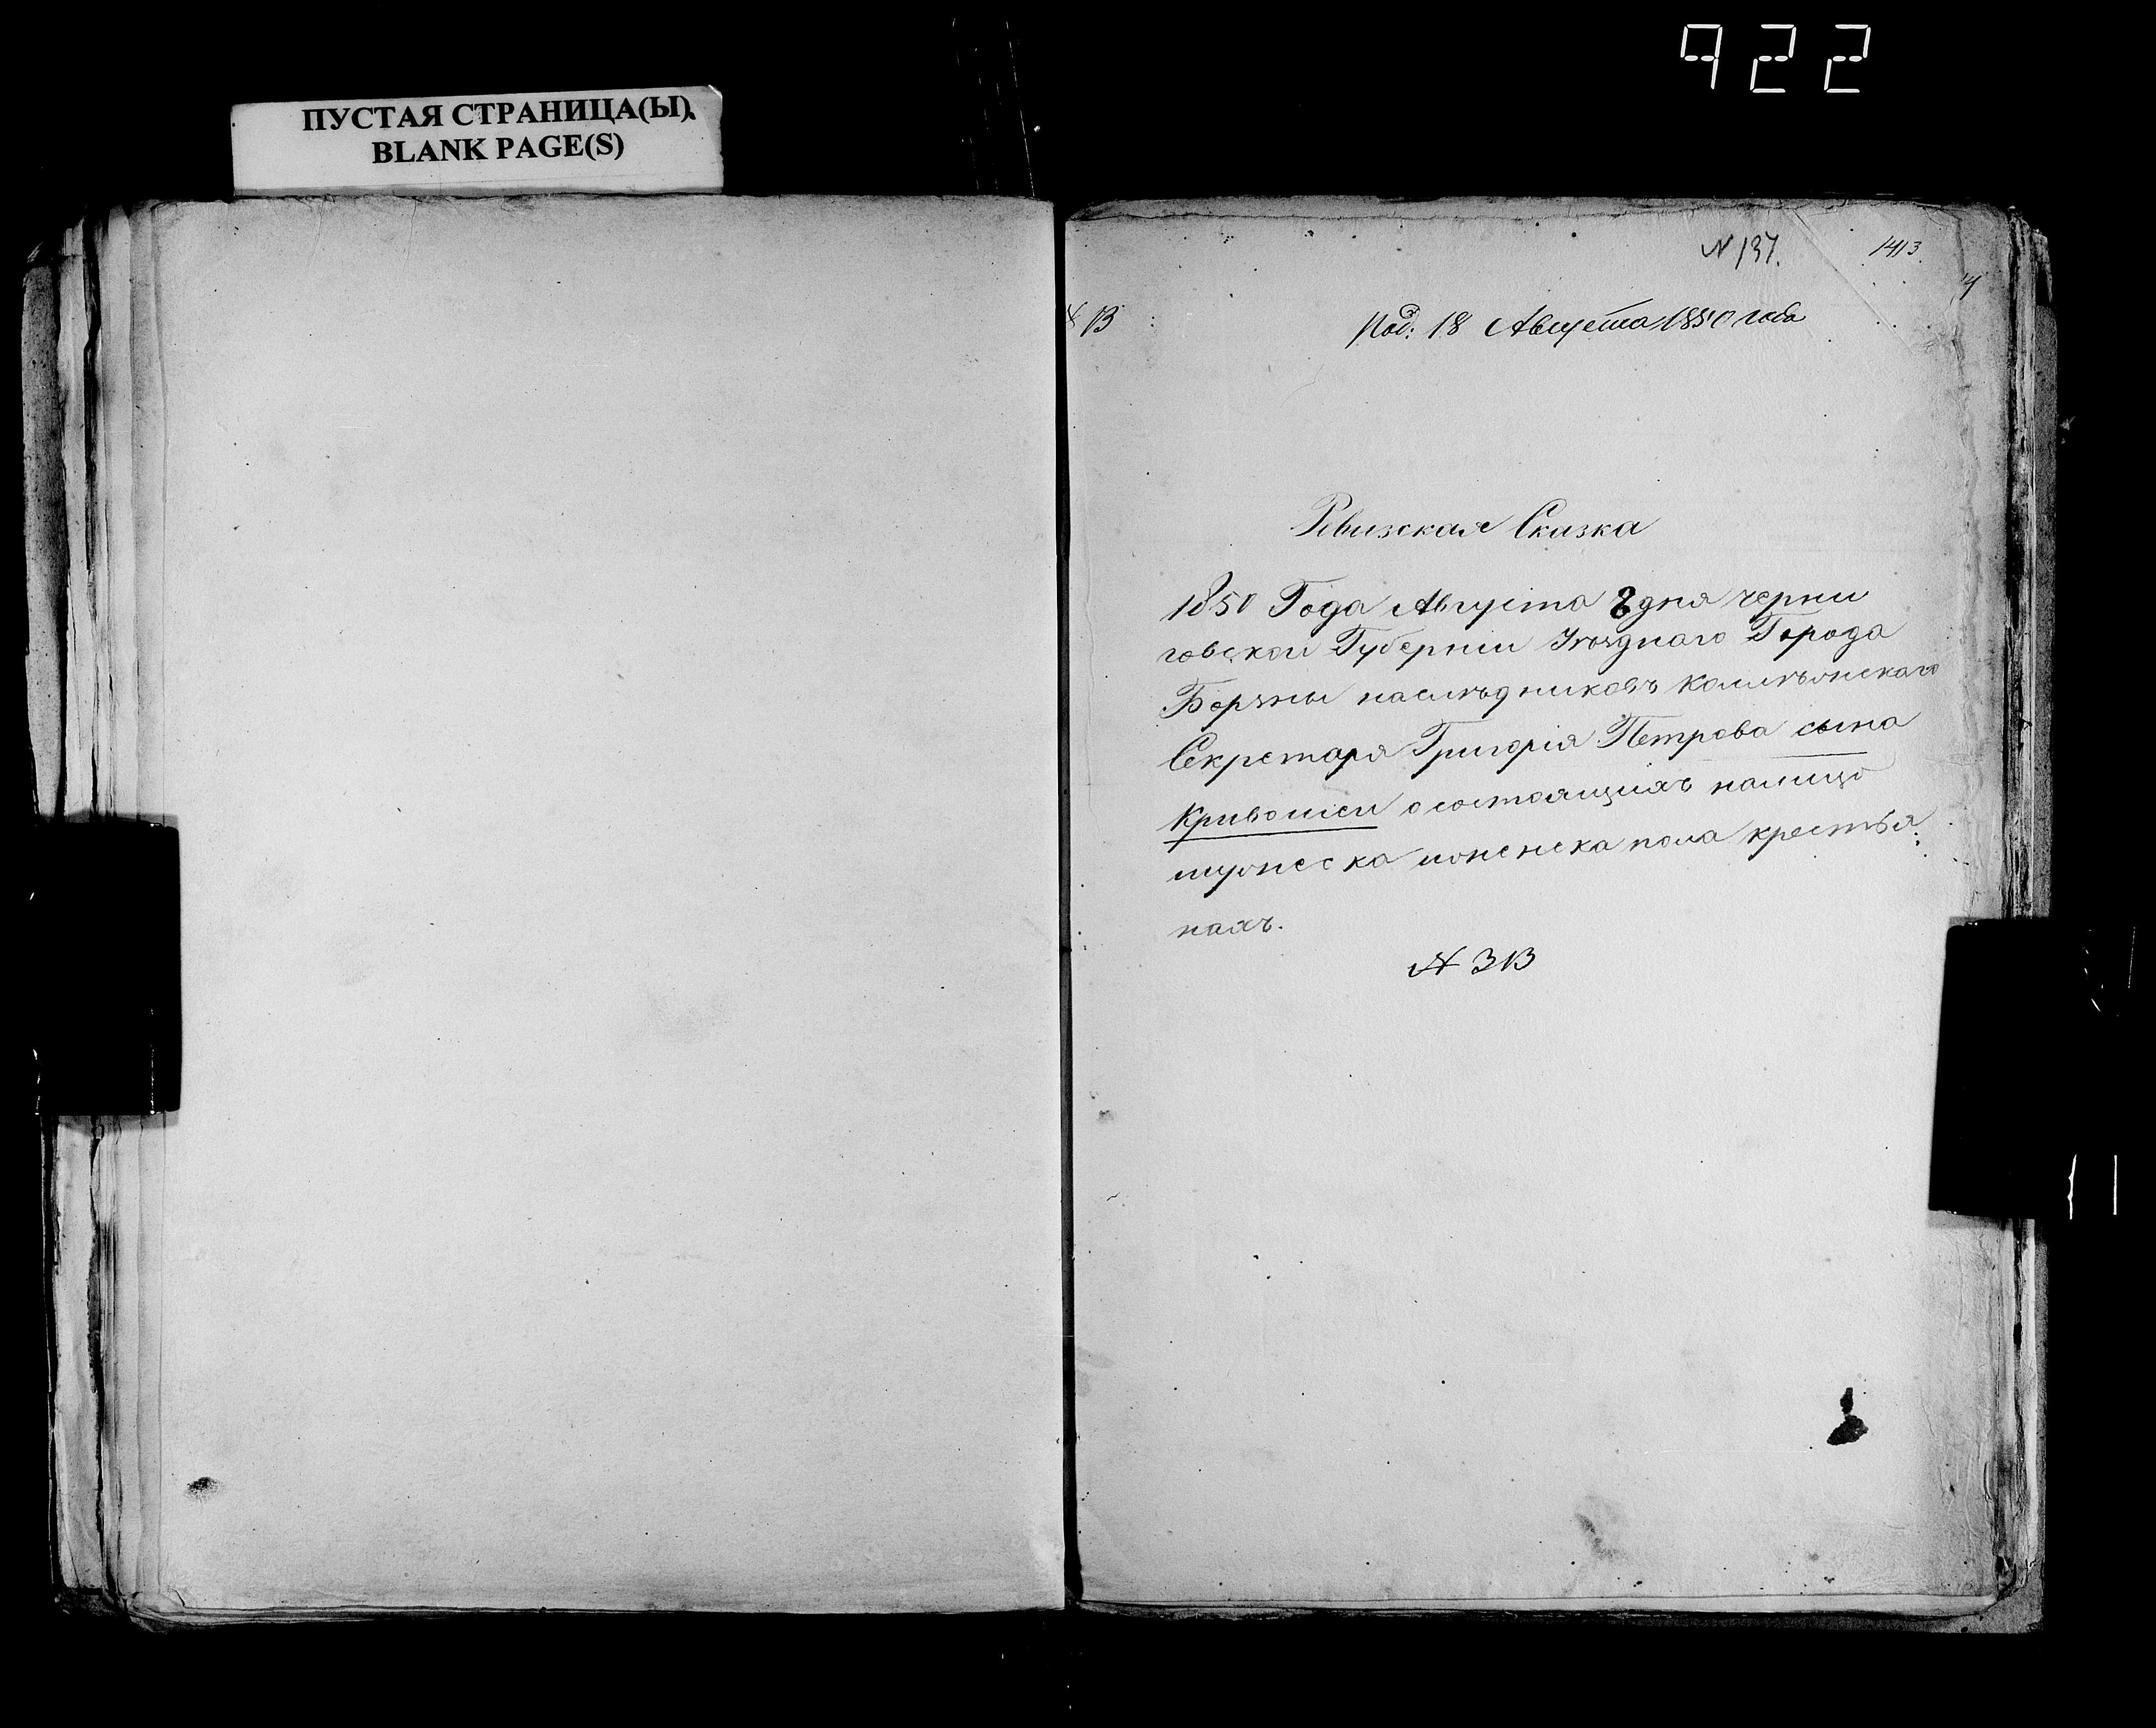 922
ПУСТАЯ СТРАНИЦА(Ы).
BLANK PAGE(S)
N 137.
1413
13
Под: 18 Августа 1850 года
Ревизская Сказка
1850 Года Августа 8 дня черни
говской Губернии Уезднаго Города
Борзны наследниковъ Колежскаго
Секретаря Григорія Петрова сына
Кривошеи о состоящихъ налицо
мужеска иженска пола крестья
нахъ.
№ 313